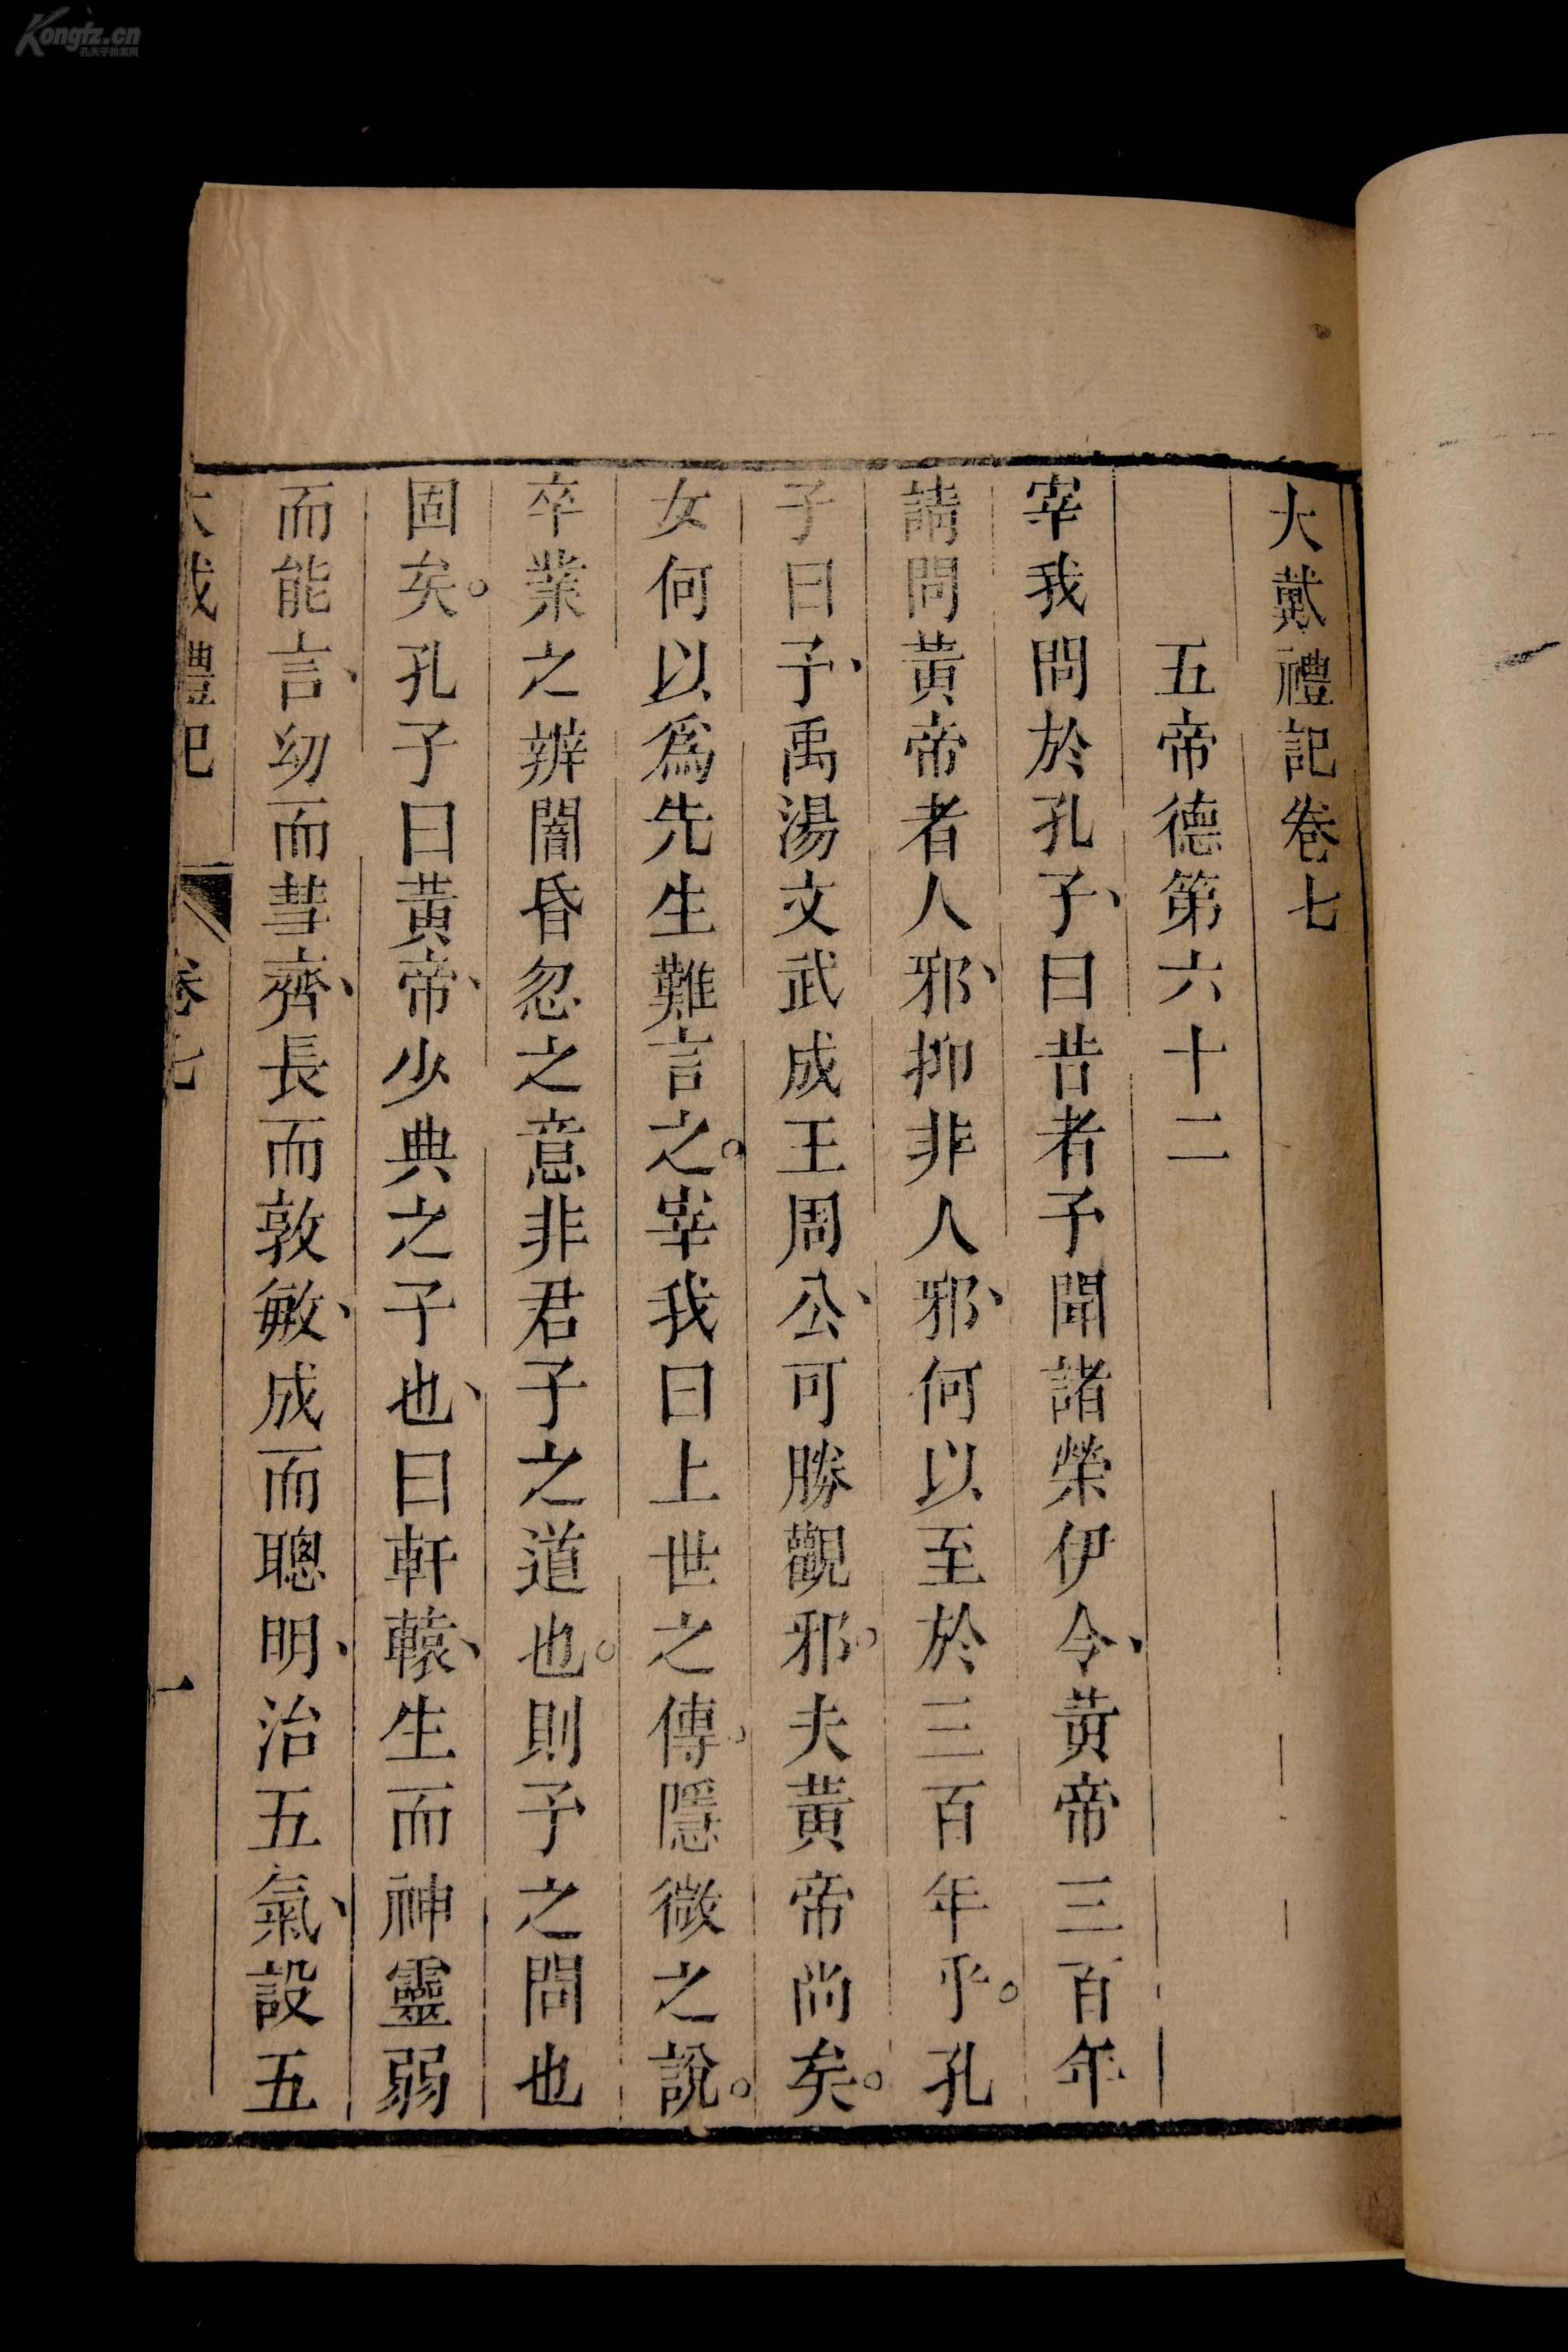 Kongfz.cn
大戴禮記卷七
五帝德第六十二
宰我問於孔子、曰昔者予聞諸榮伊令、黃帝三百年
請問黃帝者人邪、抑非人邪、何以至於三百年乎。孔
子曰予、禹湯文武成王周公、可勝觀邪。夫黃帝尚矣。
女何以爲先生難言之。宰我曰上世之傳。隱微之說。
卒業之辨闇昏忽之意非君子之道也。則予之問也
固矣。孔子曰黃帝、少典之子也、曰軒轅、生而神靈弱
而能言、幼而彗齊、長而敦敏、成而聰明、治五氣、設五
大戴禮記 卷七 一